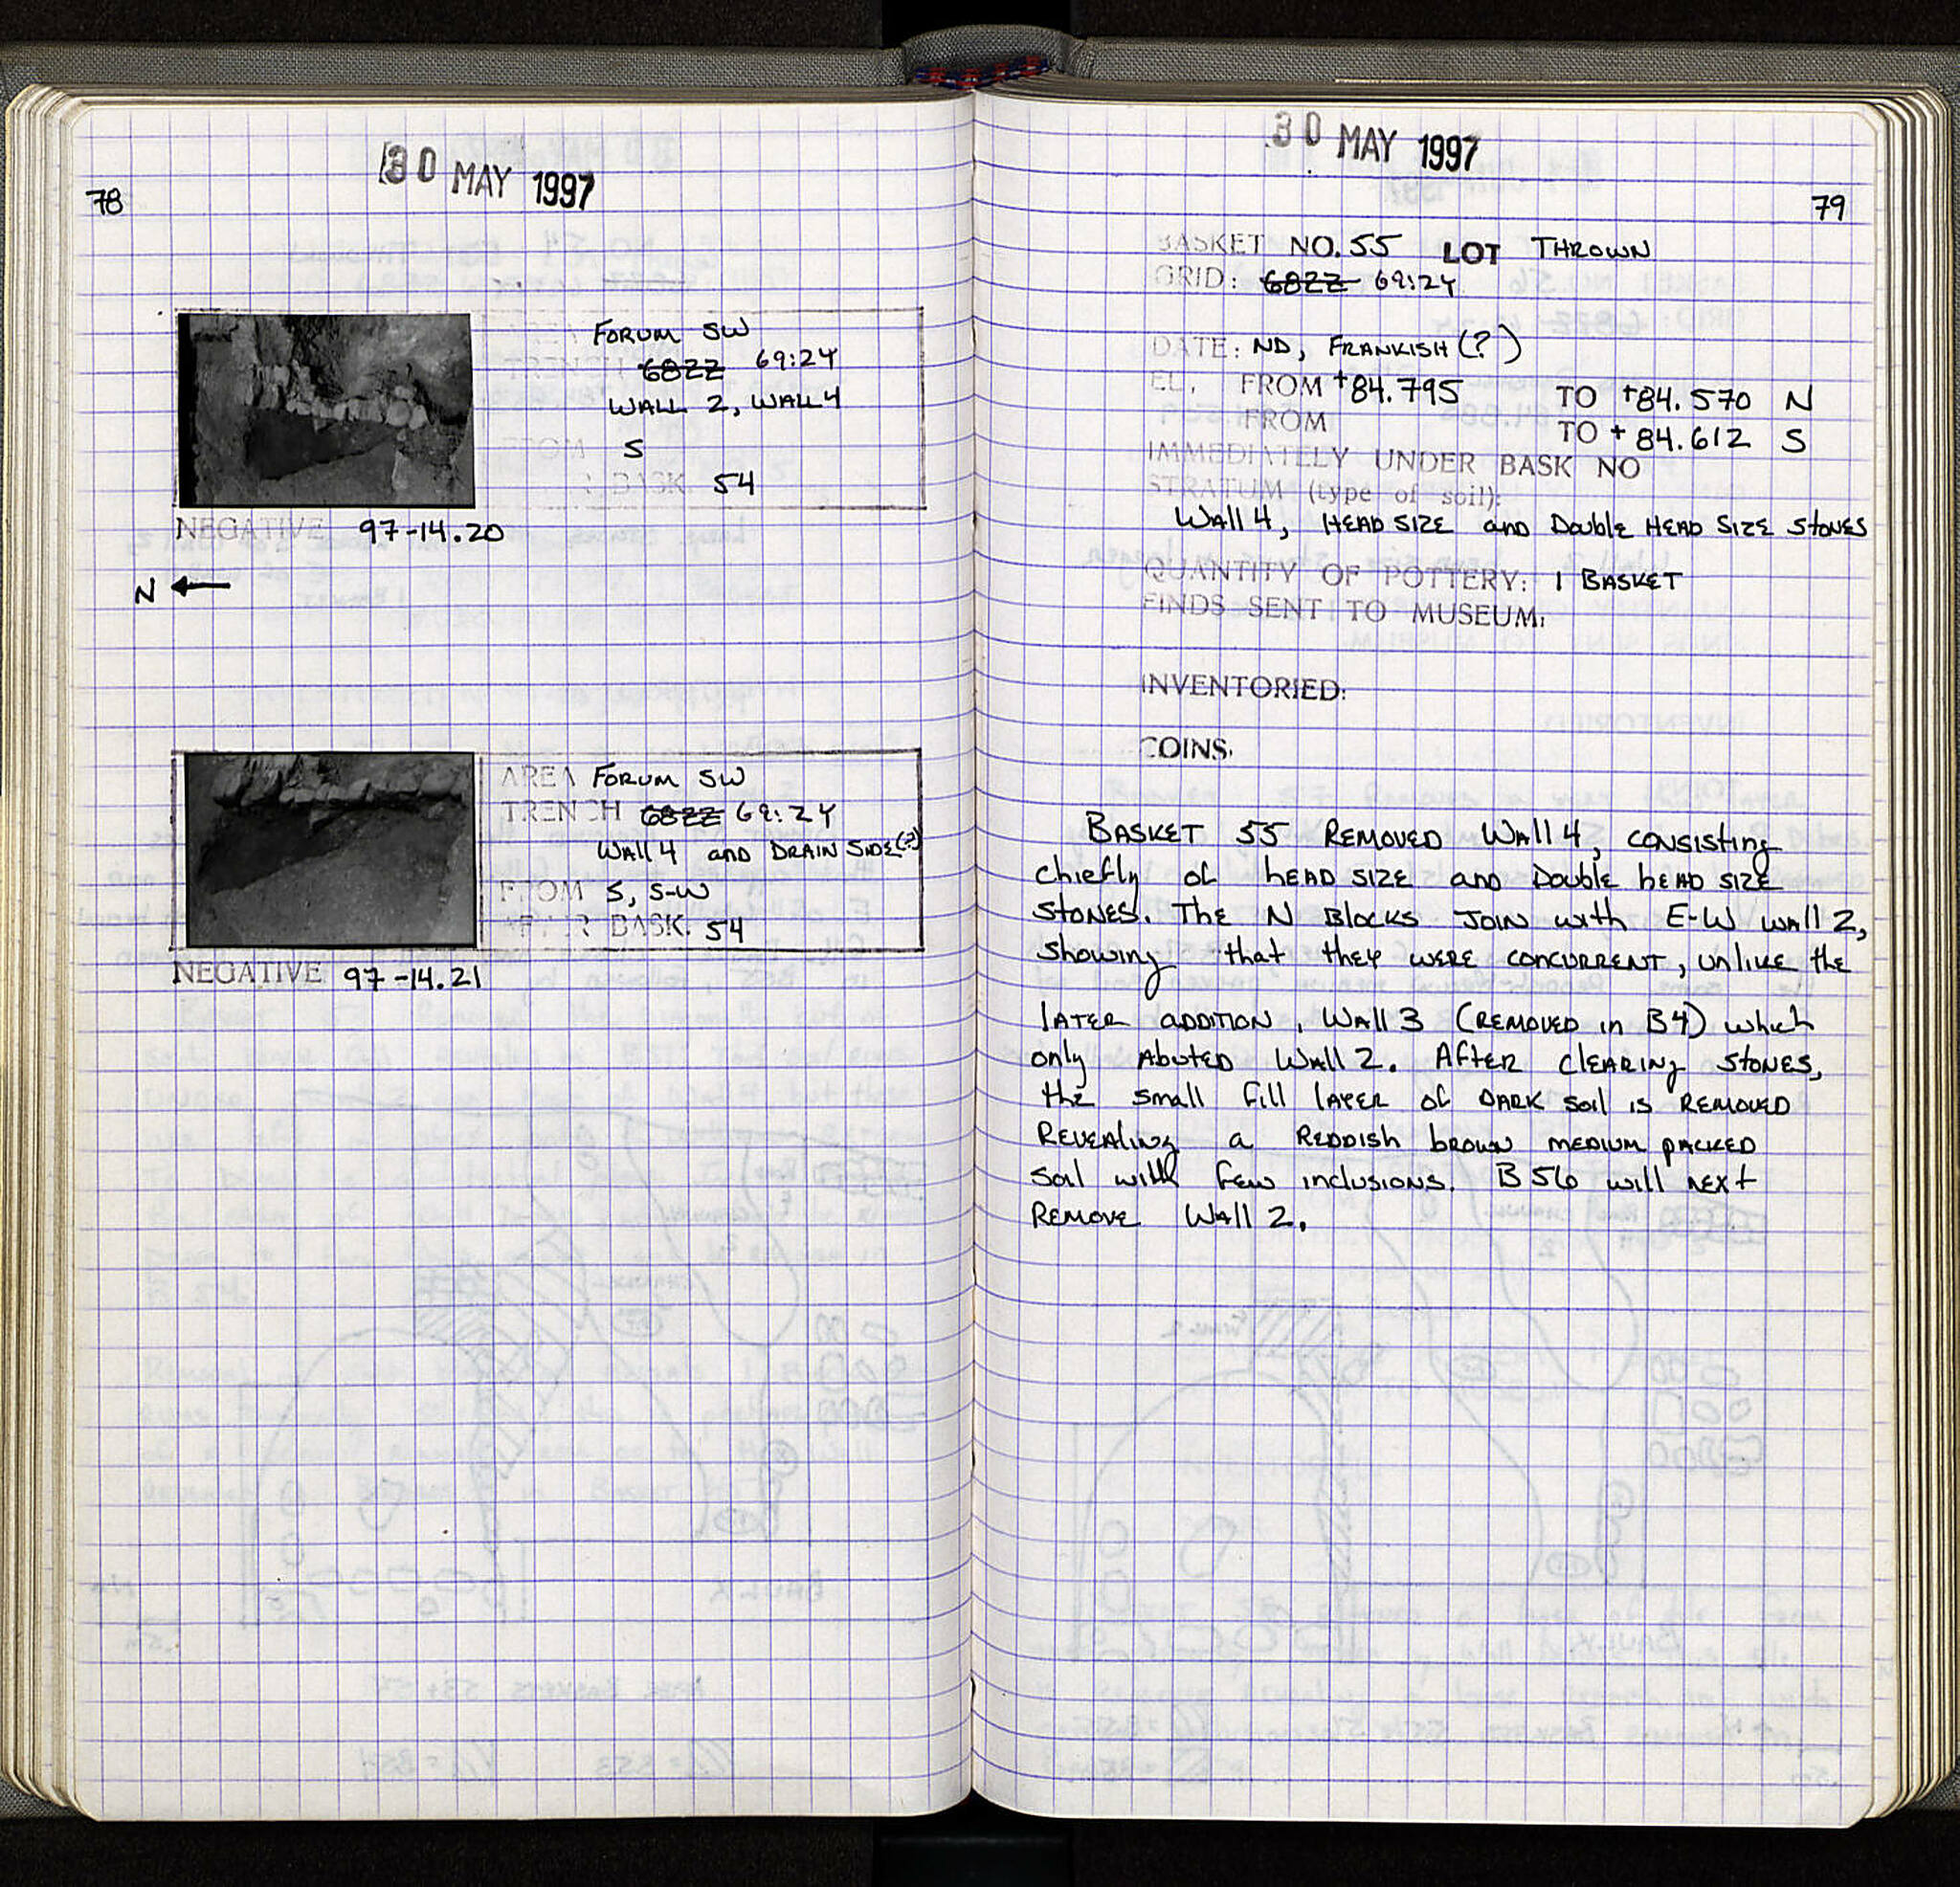 30 MAY 1997
78
AREA FORUM SW
TRENCH 68ZZ 69:24
WALL 2, WALL 4
FROM S
BASK. 54
NEGATIVE 97-14.20
N ←
AREA FORUM SW
TRENCH 68ZZ 69:24
WALL 4 and DRAIN SIDE(?)
FROM S, S-W
AFTER BASK. 54
NEGATIVE 97-14.21
30 MAY 1997
79
BASKET NO. 55 LOT THROWN
GRID: 68ZZ 69:24
DATE: ND, FRANKISH (?)
EL. FROM +84.795 TO +84.570 N
FROM TO +84.612 S
IMMEDIATELY UNDER BASK NO
STRATUM (type of soil):
Wall 4, HEAD SIZE and Double HEAD SIZE STONES
QUANTITY OF POTTERY: 1 BASKET
FINDS SENT TO MUSEUM:
INVENTORIED:
COINS:
BASKET 55 REMOVED Wall 4, consisting
chiefly of hEAD SIZE and Double hEAD SIZE
STONES. The N Blocks JOIN with E-W wall 2,
showing that they were concurrent, unlike the
later addition, Wall 3 (REMOVED in B4) which
only Abuted Wall 2. After clearing stones,
the small fill layer of DARK soil is REMOVED
Revealing a REDDISH brown medium packed
soil with few inclusions. B 56 will next
Remove Wall 2.